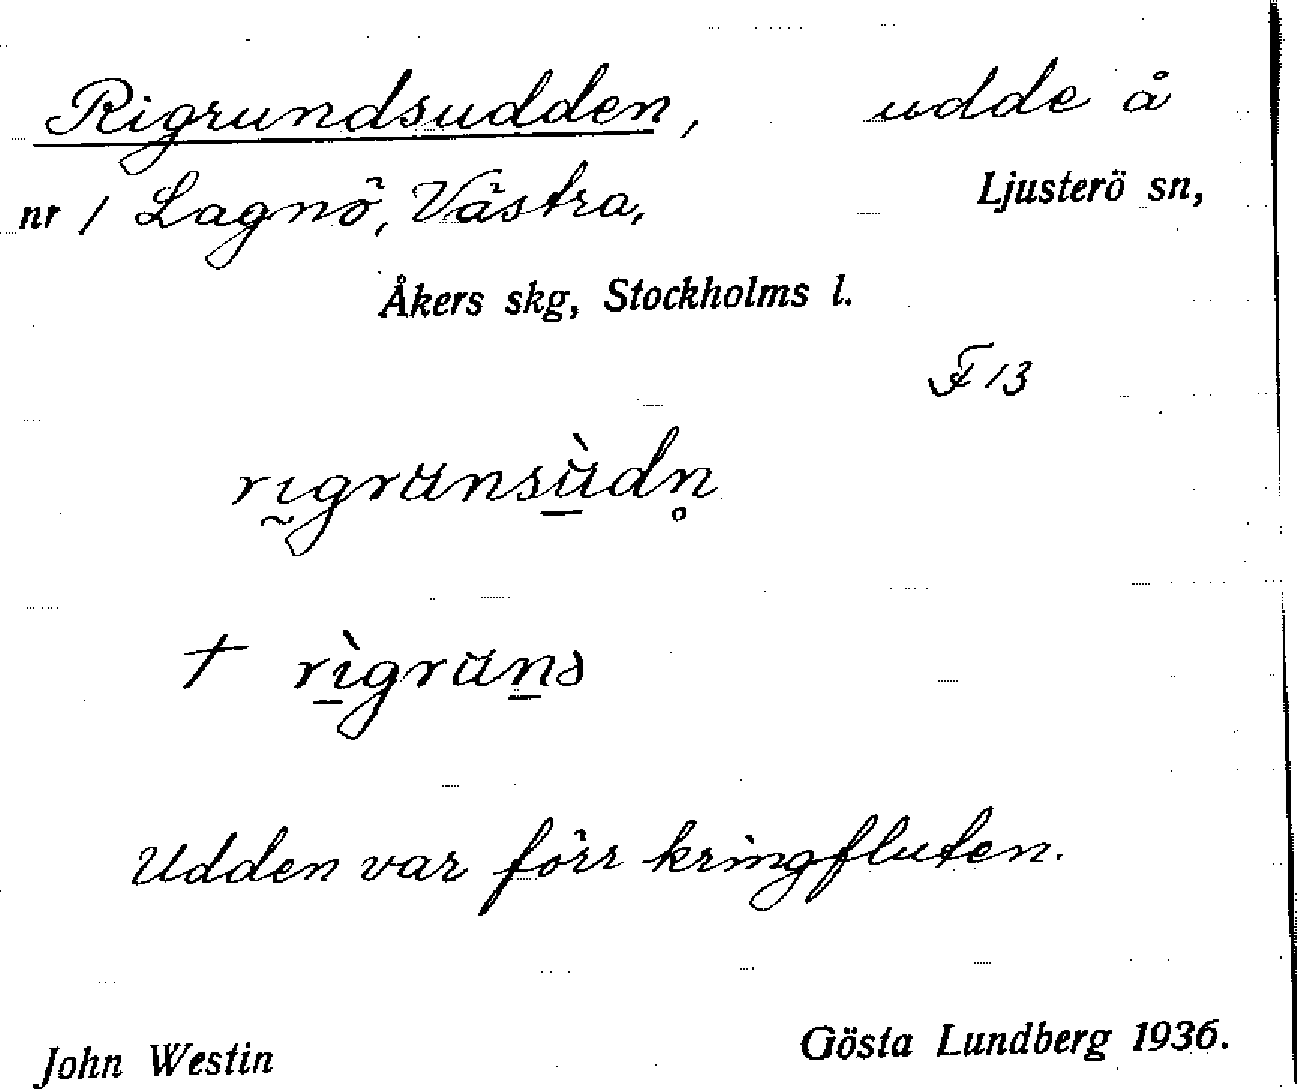 Rigrundsudden, udde å
nr 1 Lagnö, Västra, Ljusterö sn,
Åkers skg, Stockholms l.
F 13
rı̰grüns<u>ǜ</u>dn̥
† r<u>ì</u>grü<u>n</u>s
Udden var förr kringfluten.
John Westin Gösta Lundberg 1936.